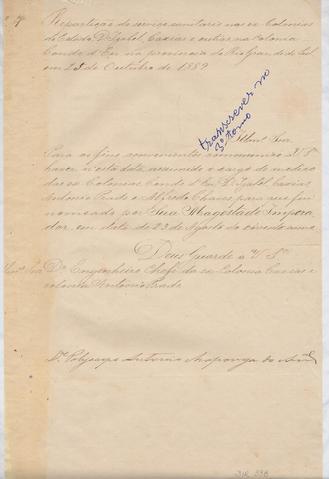 Repartição do serviço sanitario nas ex Colonias
do Estado D. Izabel Caxias e outras na Colonia
Conde d'Eu na provincia do Rio Grande do Sul
em 25 de Outubro de 1889
transcrever no
3º tomo
Illmo Snr.
Para os fins convenientes communico a V. Sª
haver n'esta data assumido o cargo de medico
das ex Colonias Conde d'Eu, D. Izabel Caxias
Antonio Prado e Alfredo Chaves para que fui
nomeado por Sua Magestade Impera
dor, em data de 23 de Agosto do corrente anno
Deus Guarde a V. Sª
Illmo Snr Dr Engenheiro Chefe da ex Colonia Caxias e
colonia Antonio Prado
Dr Polycarpo Antonio Araponga do